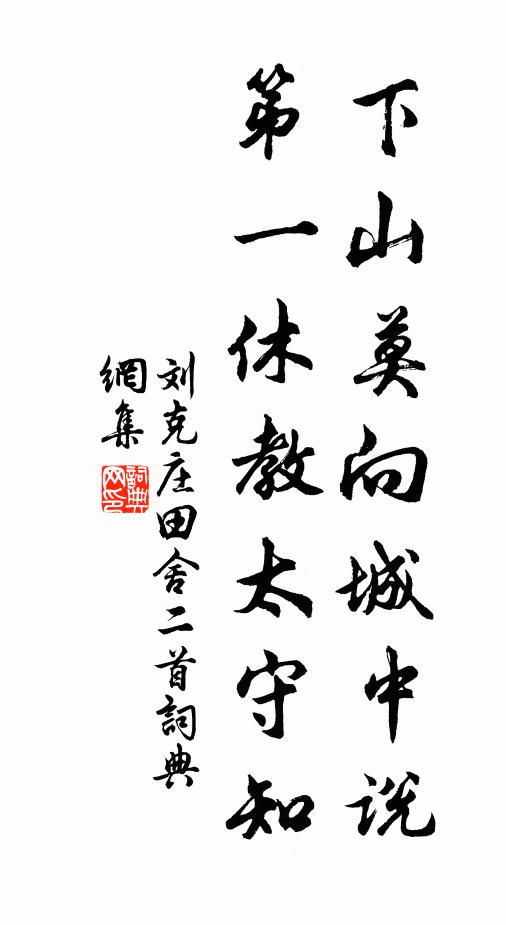 下山莫向城中说
第一休教太守知
刘克庄田舍二首詞典
網集
詞典網印